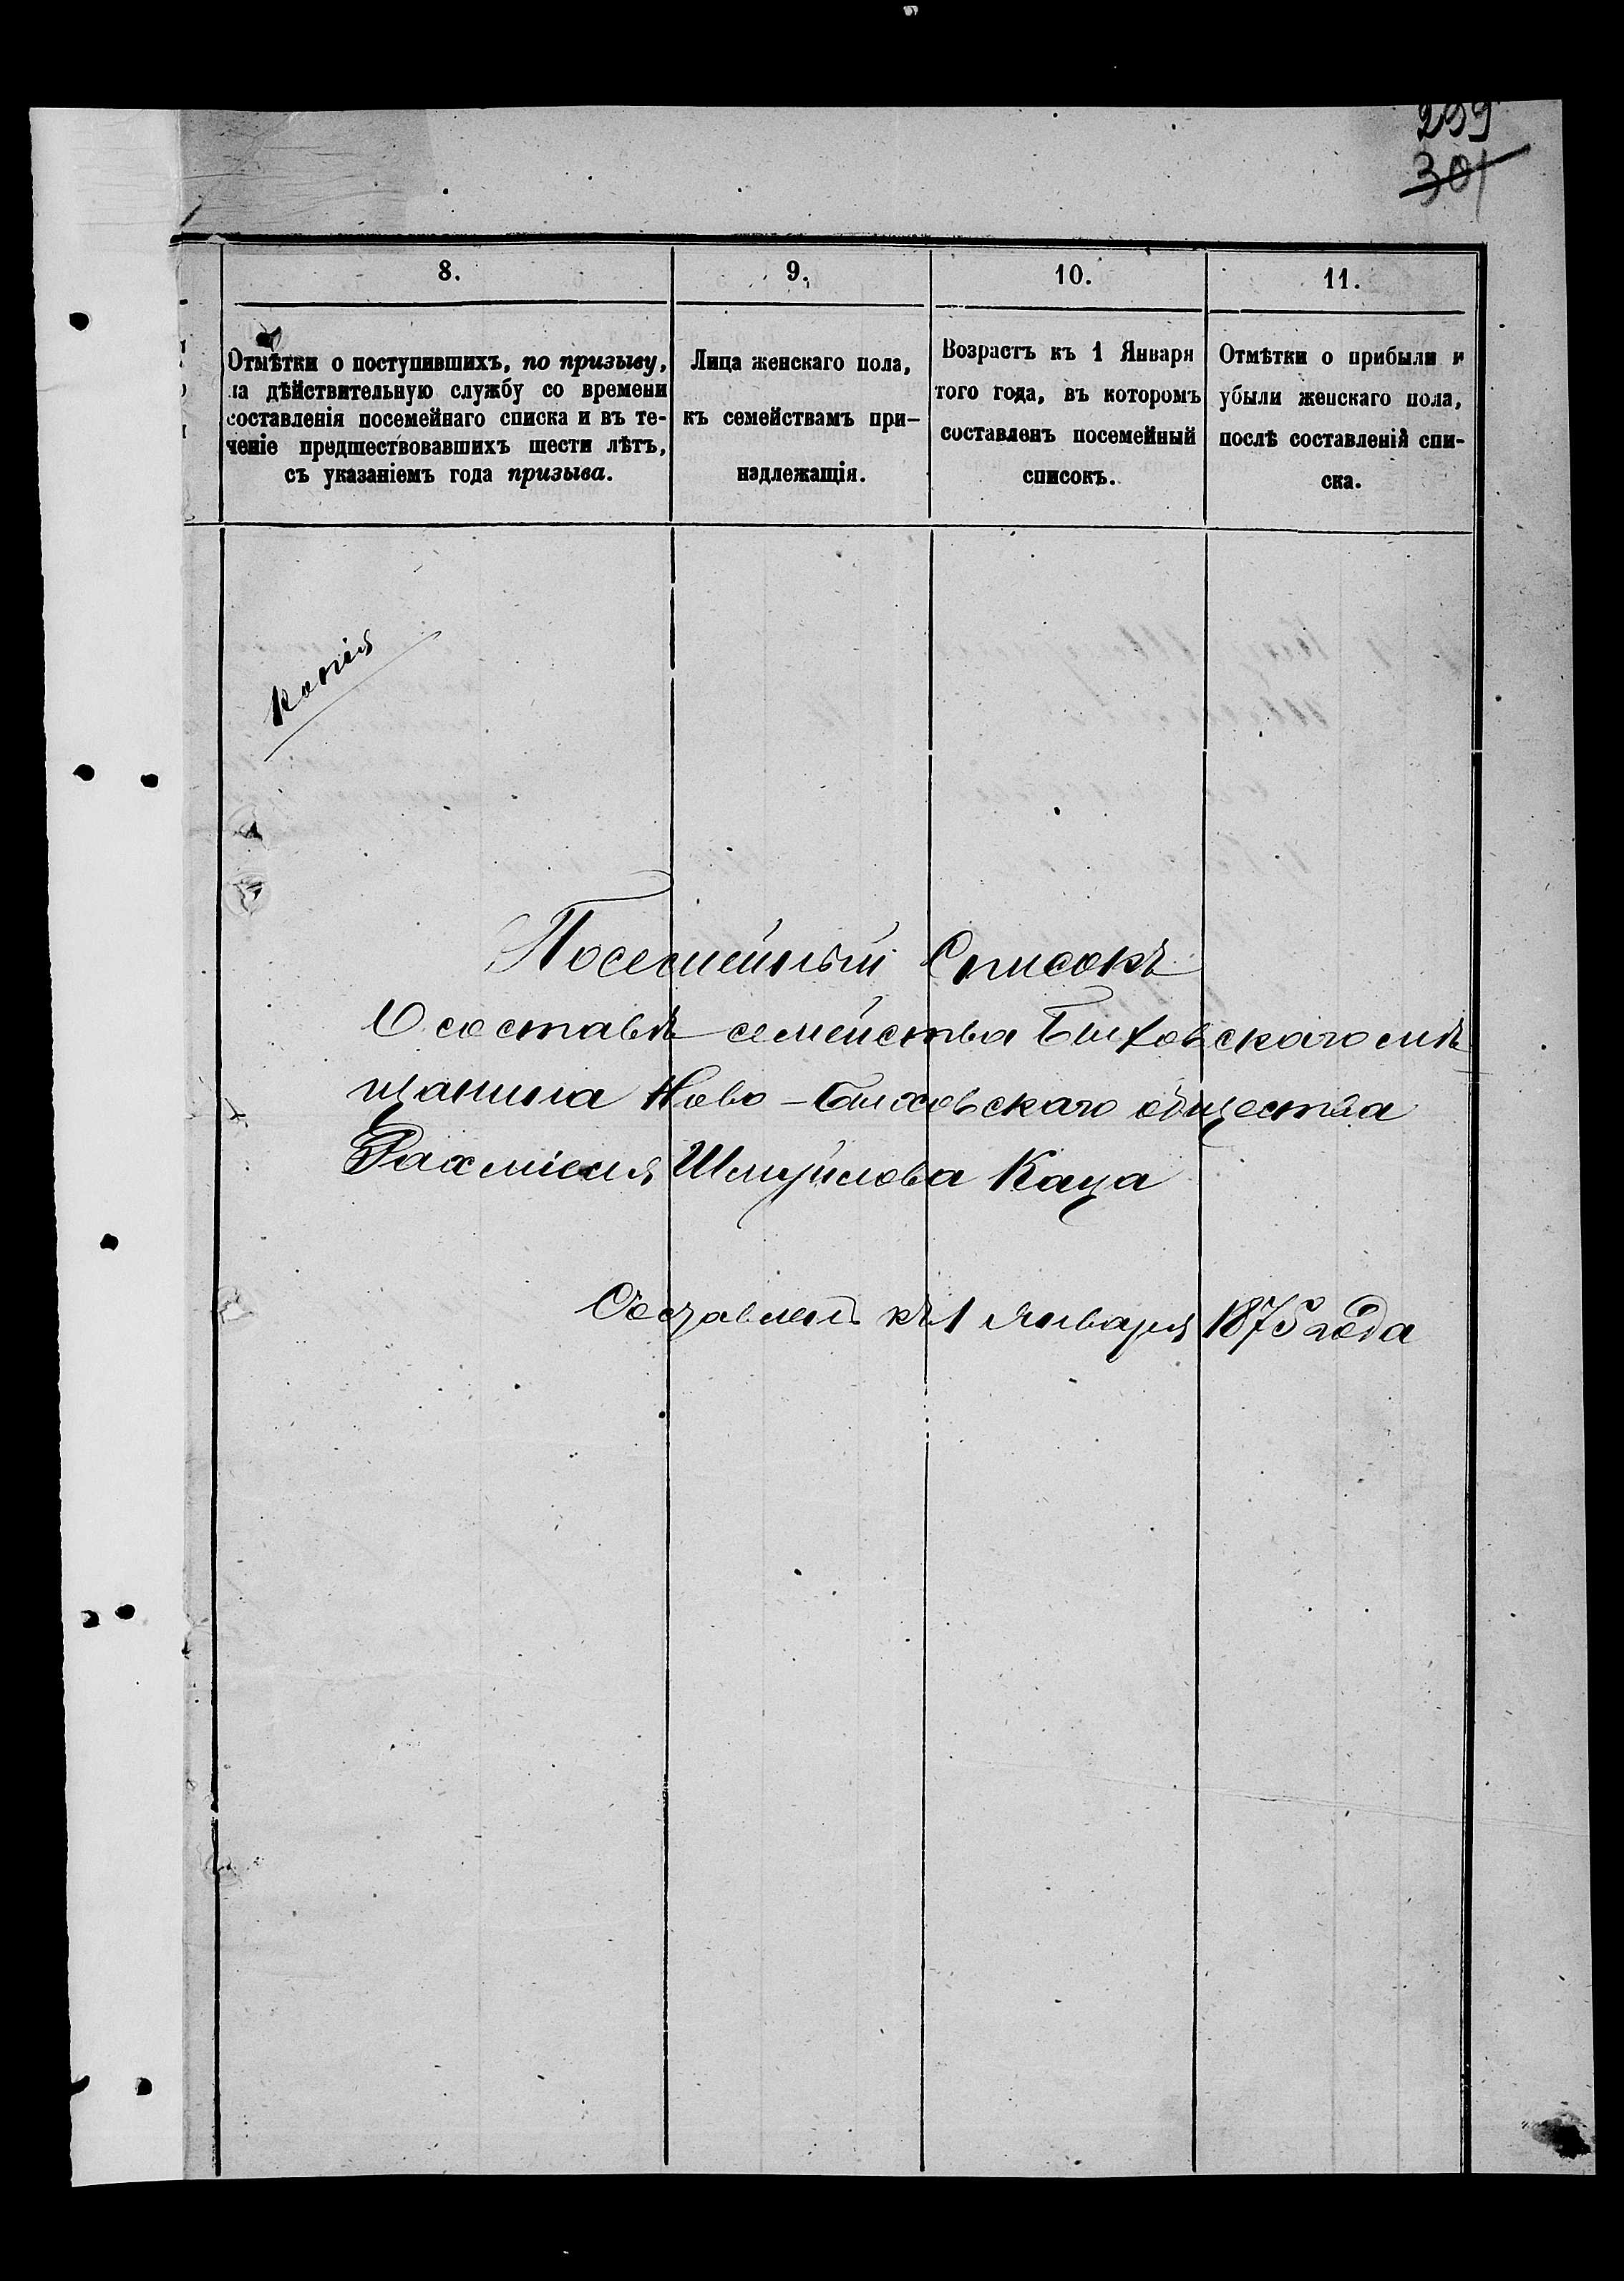 299
301
8.
9.
10.
11.
Отмѣтки о поступившихъ, по призыву,
на дѣйствительную службу со времени
составленія посемейнаго списка и въ те-
ченіе предшествовавшихъ шести лѣтъ,
съ указаніемъ года призыва.
Лица женскаго пола,
къ семействамъ при-
надлежащія.
Возрастъ къ 1 Января
того года, въ которомъ
составленъ посемейный
списокъ.
Отмѣтки о прибыли и
убыли женскаго пола,
послѣ составленія спи-
ска.
Копія
Посемейный Списокъ
О составѣ семейства Быховскаго мѣ
щанина Ново-Быховскаго общества
Рахміеля Шмуйлова Каца
Составленъ къ 1 Января 1875 года